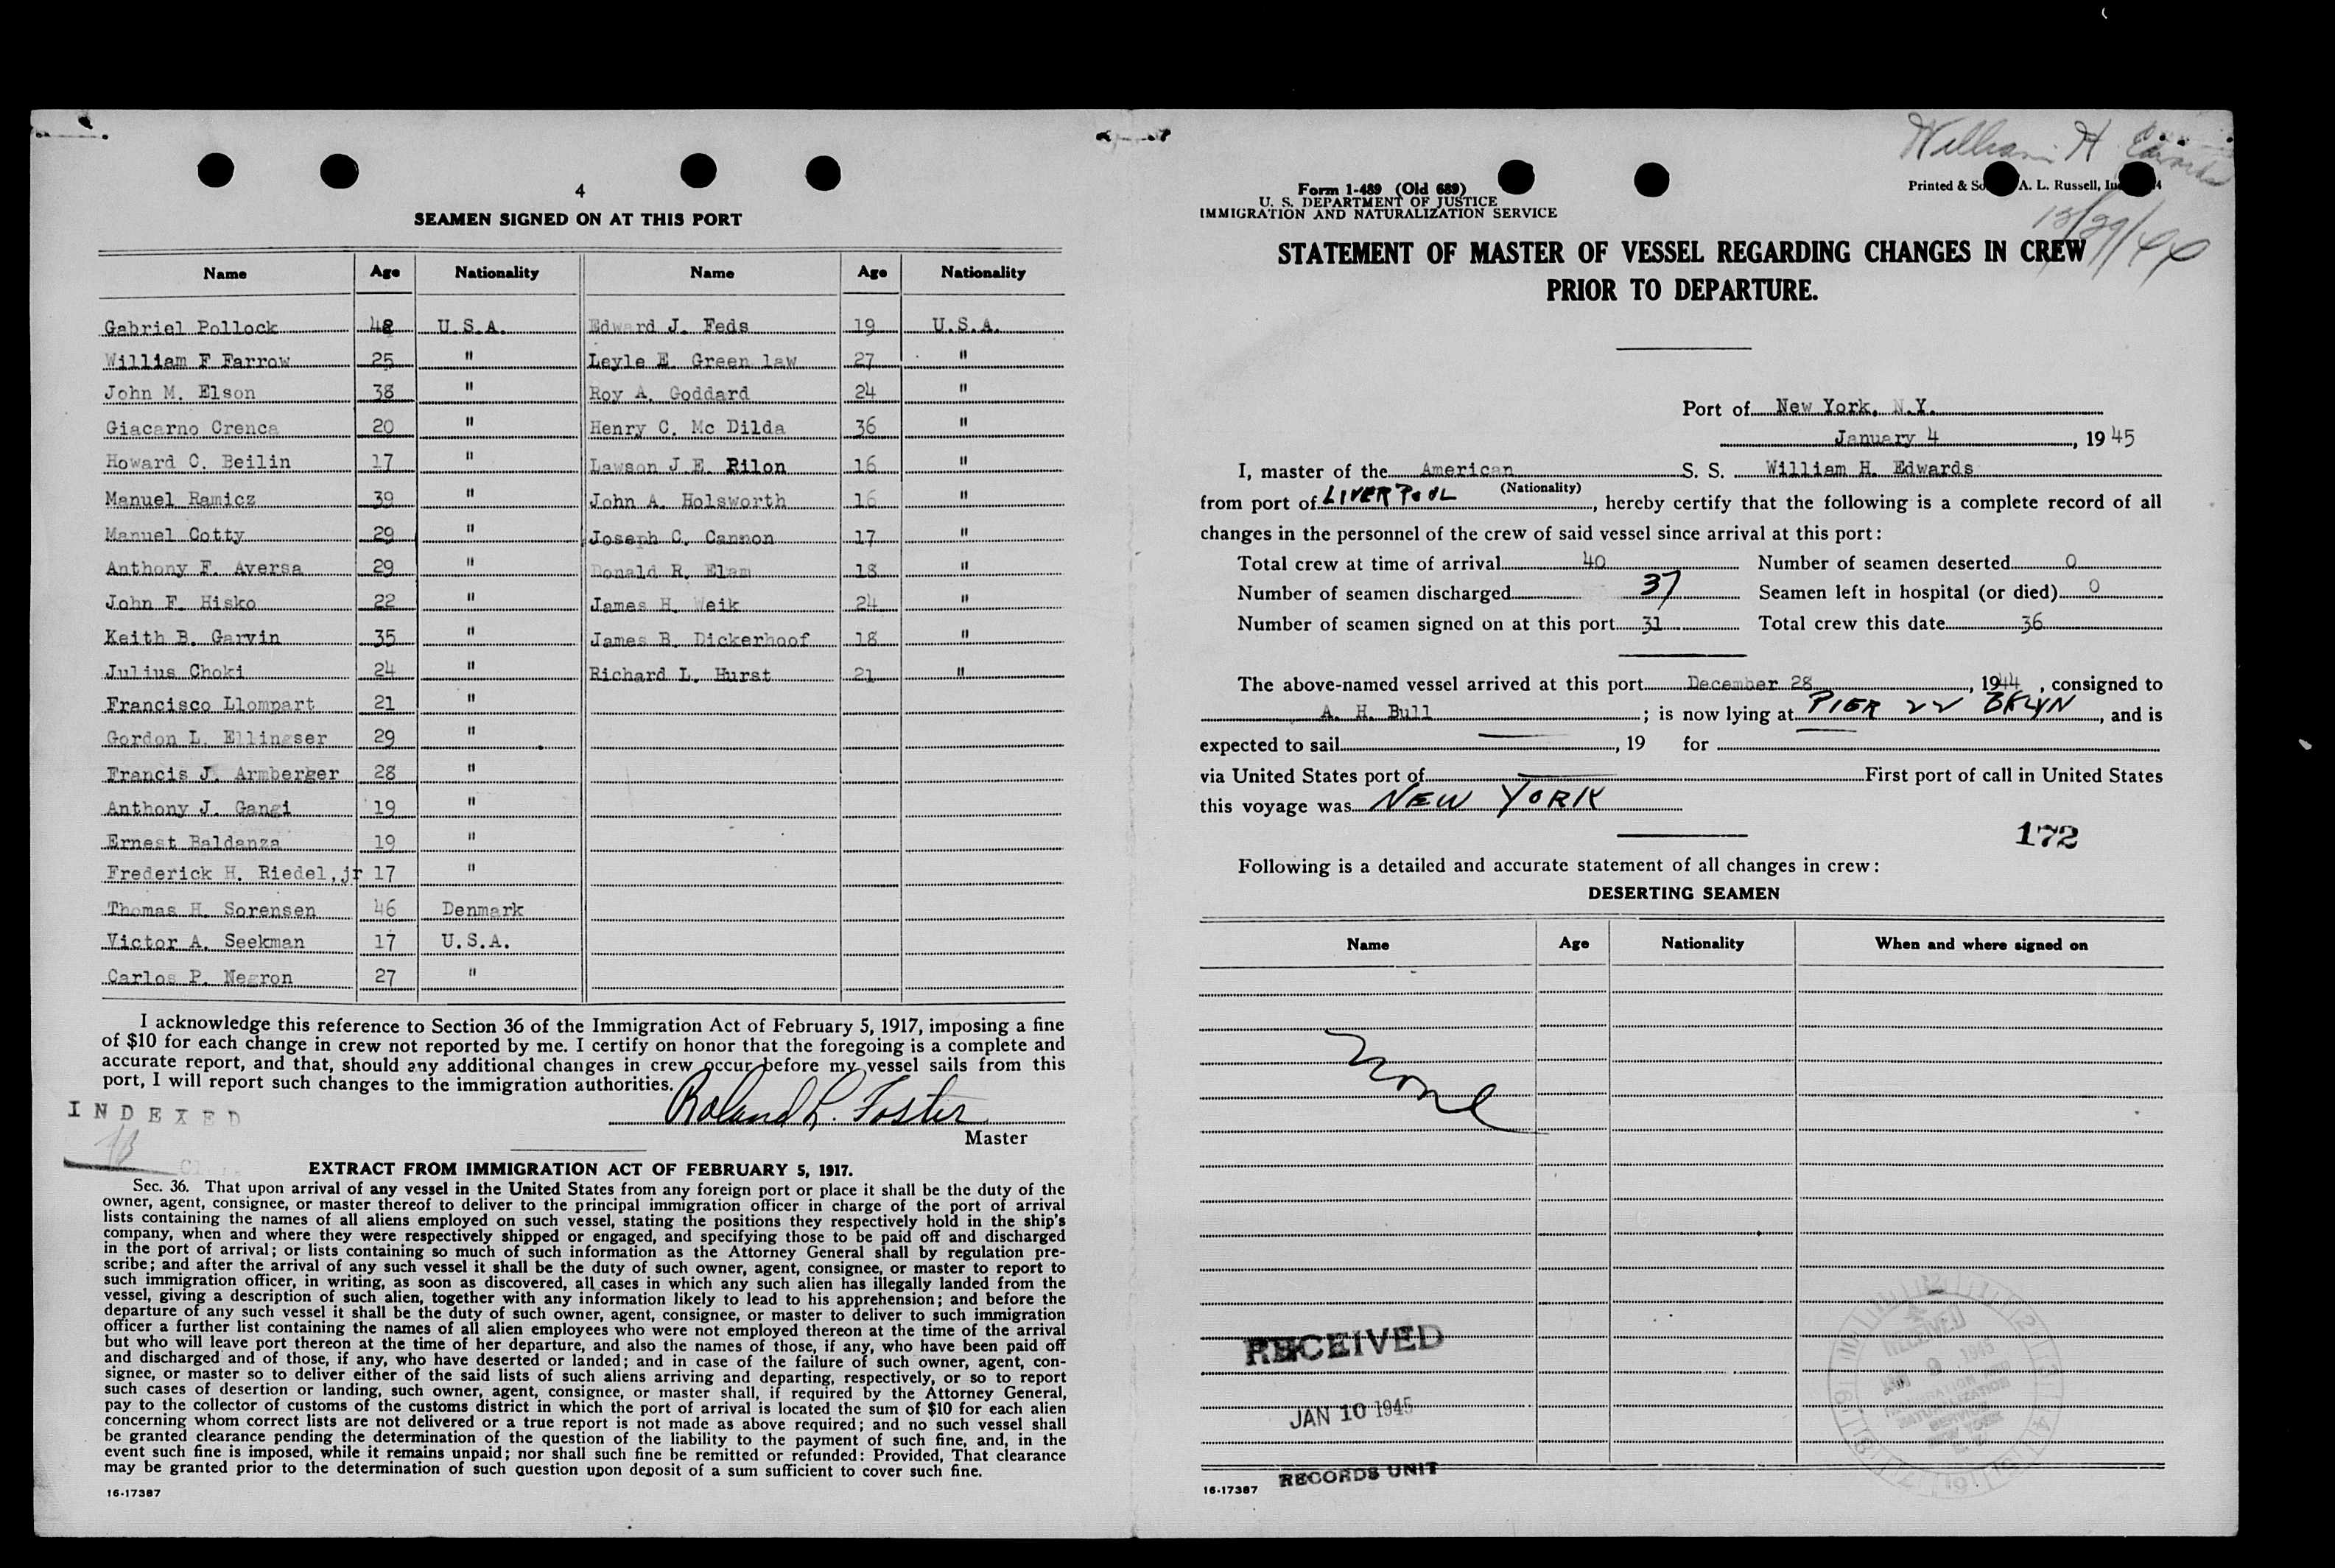 4
SEAMEN SIGNED ON AT THIS PORT
Name Age Nationality Name Age Nationality
Gabriel Pollock 42 U.S.A. Edward J. Feds 19 U.S.A.
William F Farrow 25 " Leyle E. Green law 27 "
John M. Elson 38 " Roy A. Goddard 24 "
Giacarno Crenca 20 " Henry C. Mc Dilda 36 "
Howard C. Beilin 17 " Lawson J E. Rilon 16 "
Manuel Ramicz 39 " John A. Holsworth 16 "
Manuel Cotty 29 " Joseph C. Cannon 17 "
Anthony F. Aversa 29 " Donald R. Elam 18 "
John F. Hisko 22 " James H. Weik 24 "
Keith B. Garvin 35 " James B. Dickerhoof 18 "
Julius Choki 24 " Richard L. Hurst 21 "
Francisco Llompart 21 "
Gordon L. Ellingser 29 "
Francis J. Armberger 28 "
Anthony J. Gangi 19 "
Ernest Baldanza 19 "
Frederick H. Riedel,jr 17 "
Thomas H. Sorensen 46 Denmark
Victor A. Seekman 17 U.S.A.
Carlos P. Negron 27 "
I acknowledge this reference to Section 36 of the Immigration Act of February 5, 1917, imposing a fine
of $10 for each change in crew not reported by me. I certify on honor that the foregoing is a complete and
accurate report, and that, should any additional changes in crew occur before my vessel sails from this
port, I will report such changes to the immigration authorities.
INDEXED
Roland L. Foster
Master
EXTRACT FROM IMMIGRATION ACT OF FEBRUARY 5, 1917.
Sec. 36. That upon arrival of any vessel in the United States from any foreign port or place it shall be the duty of the
owner, agent, consignee, or master thereof to deliver to the principal immigration officer in charge of the port of arrival
lists containing the names of all aliens employed on such vessel, stating the positions they respectively hold in the ship's
company, when and where they were respectively shipped or engaged, and specifying those to be paid off and discharged
in the port of arrival; or lists containing so much of such information as the Attorney General shall by regulation pre-
scribe; and after the arrival of any such vessel it shall be the duty of such owner, agent, consignee, or master to report to
such immigration officer, in writing, as soon as discovered, all cases in which any such alien has illegally landed from the
vessel, giving a description of such alien, together with any information likely to lead to his apprehension; and before the
departure of any such vessel it shall be the duty of such owner, agent, consignee, or master to deliver to such immigration
officer a further list containing the names of all alien employees who were not employed thereon at the time of the arrival
but who will leave port thereon at the time of her departure, and also the names of those, if any, who have been paid off
and discharged and of those, if any, who have deserted or landed; and in case of the failure of such owner, agent, con-
signee, or master so to deliver either of the said lists of such aliens arriving and departing, respectively, or so to report
such cases of desertion or landing, such owner, agent, consignee, or master shall, if required by the Attorney General,
pay to the collector of customs of the customs district in which the port of arrival is located the sum of $10 for each alien
concerning whom correct lists are not delivered or a true report is not made as above required; and no such vessel shall
be granted clearance pending the determination of the question of the liability to the payment of such fine, and, in the
event such fine is imposed, while it remains unpaid; nor shall such fine be remitted or refunded: Provided, That clearance
may be granted prior to the determination of such question upon deposit of a sum sufficient to cover such fine.
16-17387
William H
Form 1-489 (Old 689)
U. S. DEPARTMENT OF JUSTICE
IMMIGRATION AND NATURALIZATION SERVICE
Printed & A. L. Russell,
12/29/44
STATEMENT OF MASTER OF VESSEL REGARDING CHANGES IN CREW
PRIOR TO DEPARTURE.
Port of New York, N.Y.
January 4, 1945
I, master of the American S. S. William H. Edwards
(Nationality)
from port of LIVERPOOL, hereby certify that the following is a complete record of all
changes in the personnel of the crew of said vessel since arrival at this port:
Total crew at time of arrival 40 Number of seamen deserted 0
Number of seamen discharged 37 Seamen left in hospital (or died) 0
Number of seamen signed on at this port 31 Total crew this date 36
The above-named vessel arrived at this port December 28, 1944, consigned to
A. H. Bull; is now lying at PIER 22 BKLYN, and is
expected to sail, 19 for
via United States port of First port of call in United States
this voyage was NEW YORK
172
Following is a detailed and accurate statement of all changes in crew:
DESERTING SEAMEN
Name Age Nationality When and where signed on
None
RECEIVED
JAN 10 1945
RECORDS UNIT
RECEIVED
JAN 9 1945
IMMIGRATION AND
NATURALIZATION
SERVICE
NEW YORK
16-17387